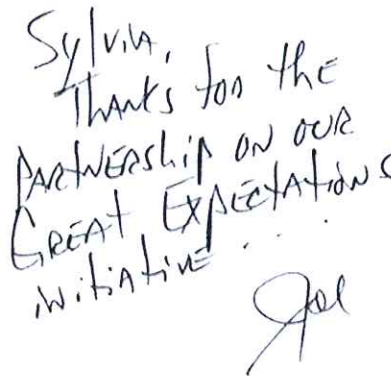 Sylvia,
Thanks for the
Partnership on our
Great Expectations
initiative ...
Joe